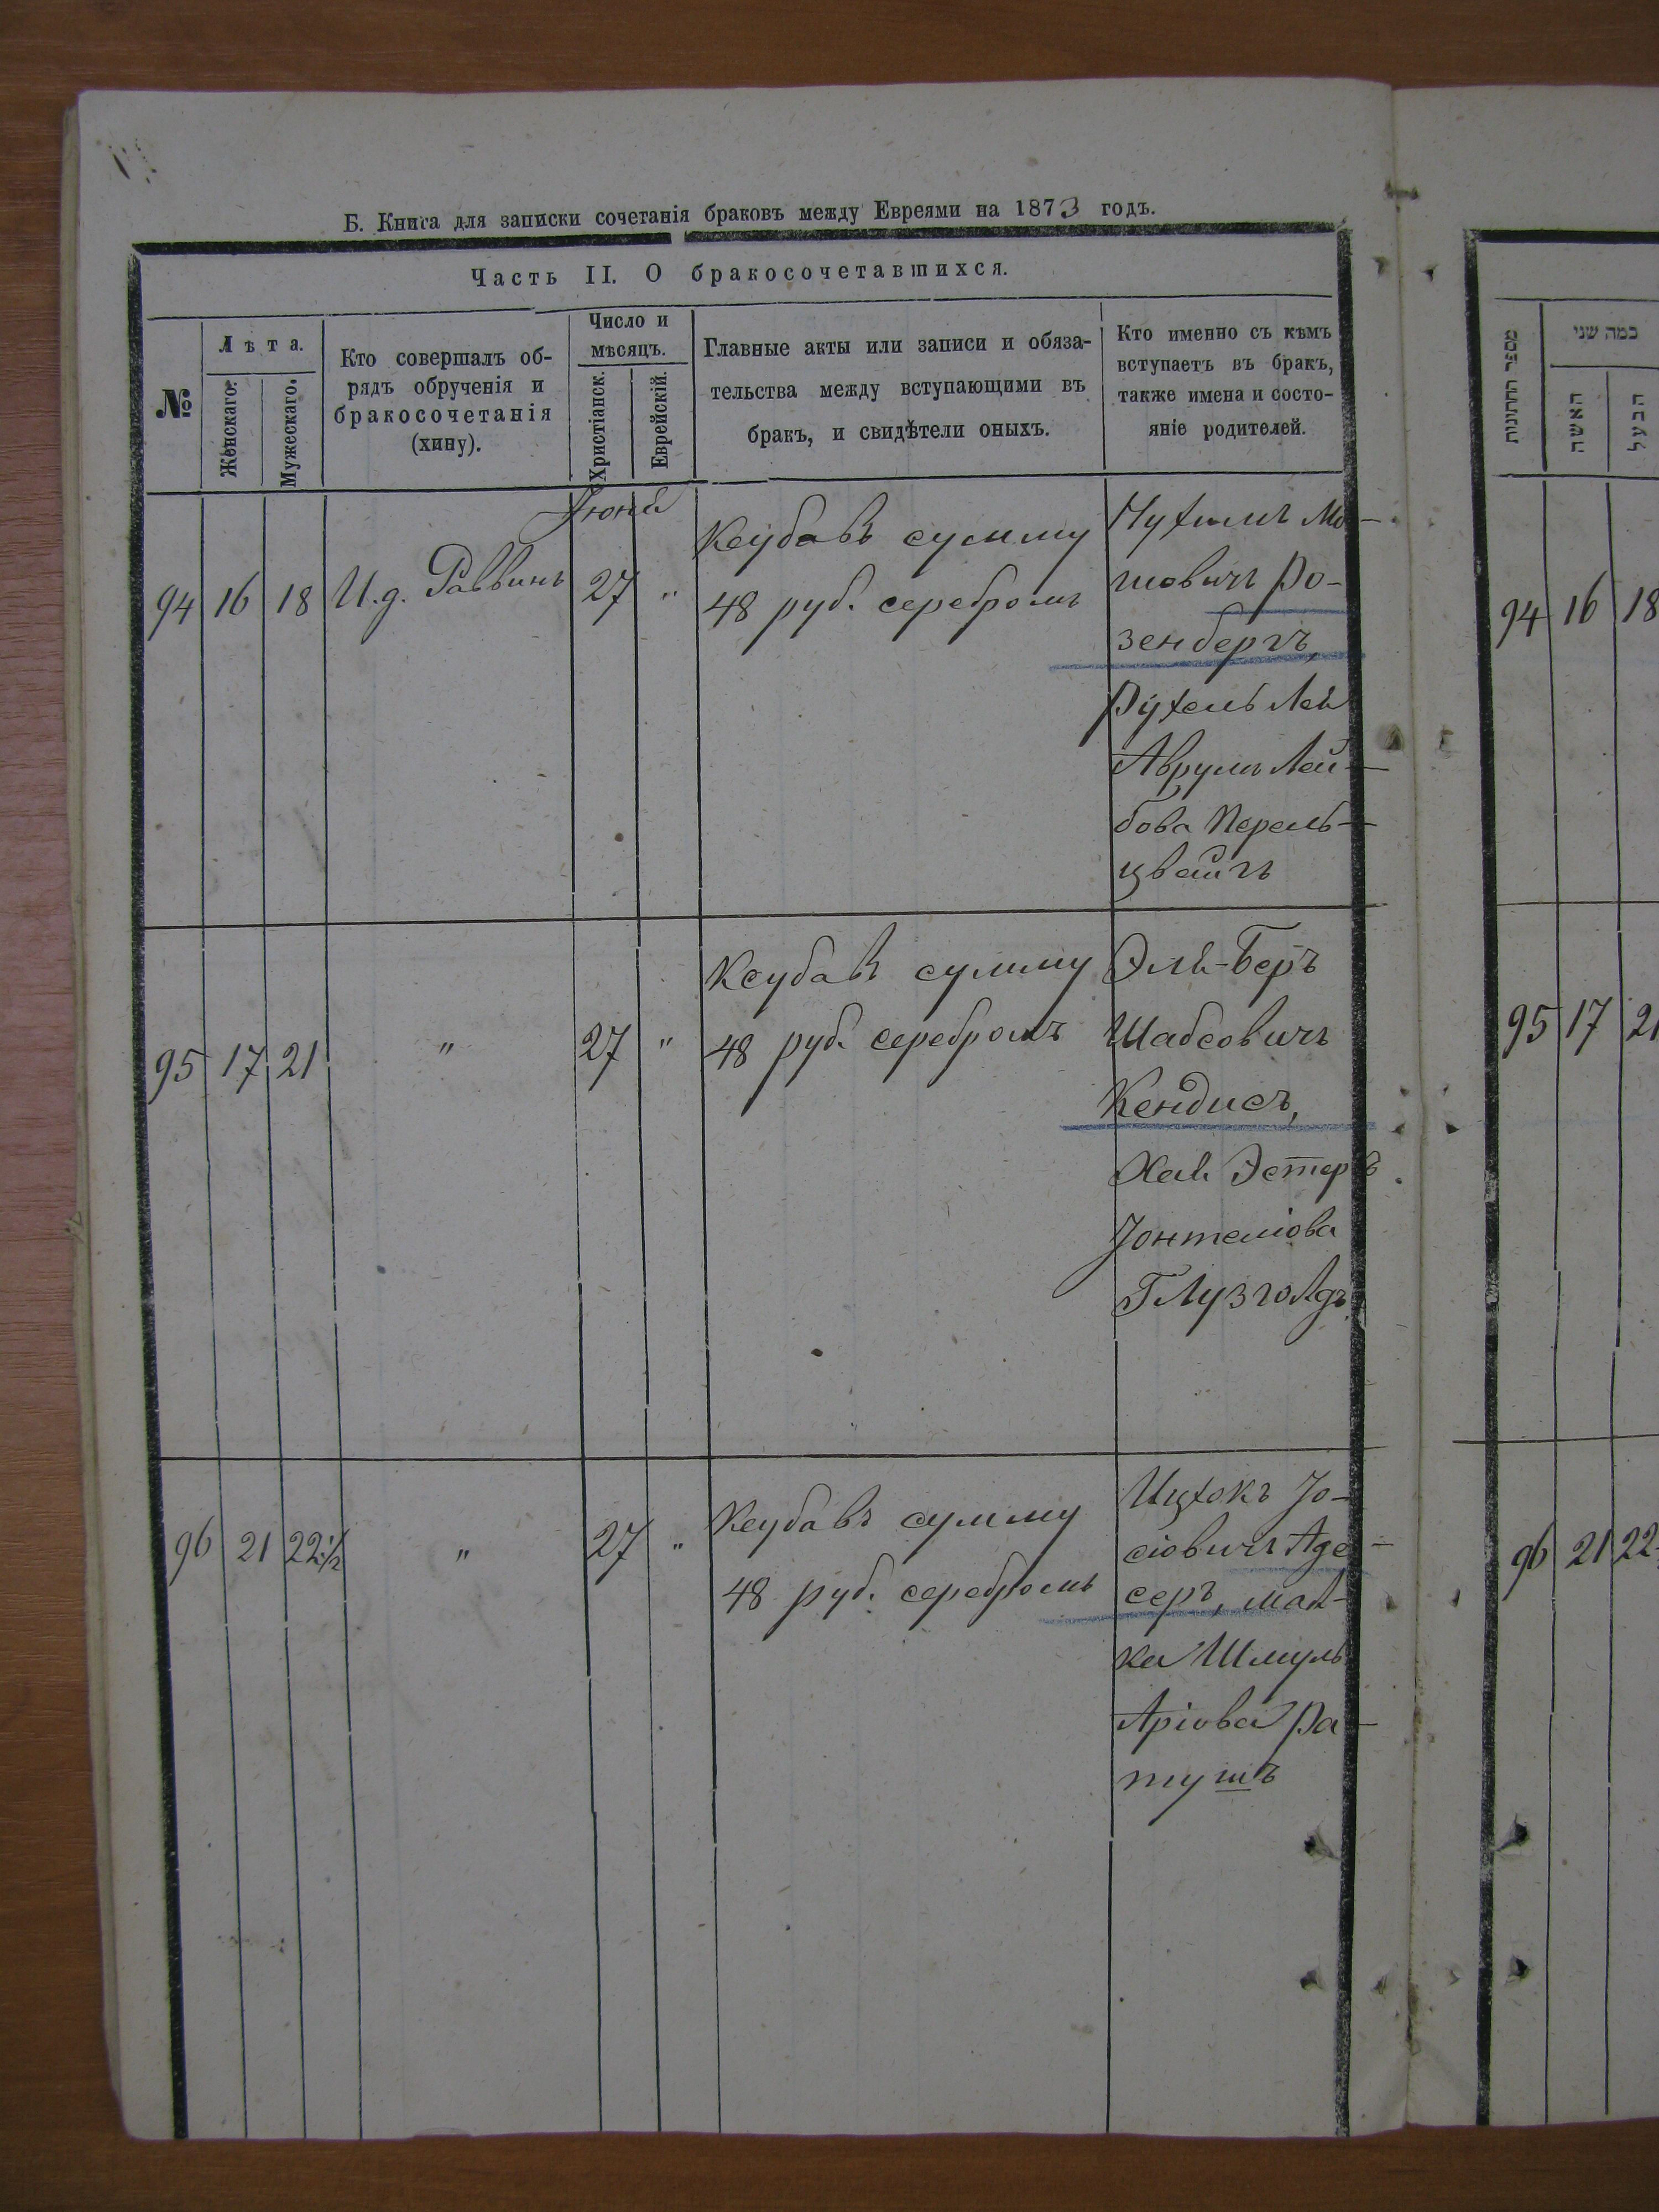 Б. Книга для записки сочетанія браковъ между Евреями на 1873 годъ.
Часть II. О бракосочетавшихся.
№
Лѣта.
Женскаго.
Мужескаго.
Кто совершалъ об-
рядъ обрученія и
бракосочетанія
(хину).
Число и
мѣсяцъ.
Христіанск.
Еврейскій.
Главные акты или записи и обяза-
тельства между вступающими въ
бракъ, и свидѣтели оныхъ.
Кто именно съ кѣмъ
вступаетъ въ бракъ,
также имена и состо-
яніе родителей.
מספר החתונות
כמה שני
האשה
הבעל
Іюнь
94 16 18 И.д. Раввинъ 27 "
Ксуба въ сумму
48 руб. серебромъ
Нухимъ Мо-
шовичъ Ро-
зенбергъ,
Рухель Лея
Аврумъ Лей-
бова Перель-
цвейгъ
94 16 18
95 17 21 " 27 "
Ксуба въ сумму
48 руб. серебромъ
Эля-Беръ
Шабсовичъ
Кендисъ,
Хая Эстеръ
Іонтеліова
Глузгольдъ
95 17 21
96 21 22 1/2 " 27 "
Ксуба въ сумму
48 руб. серебромъ
Ицхокъ Іо-
сіовичъ Аде-
серъ, мал-
ка Шмуль
Аріова Ра-
тушъ
96 21 22